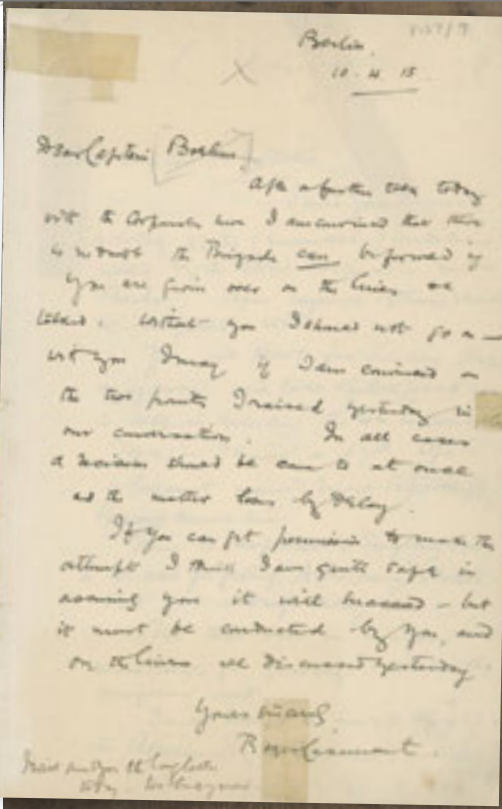 Berlin,
10 . 4 15
Dear Captain Boehm
After a further talk today
with the Corporals here I am convinced that there
is no doubt the Brigade can be formed if
you are given over on the lines we
talked. Without you I should not go on —
with you I may if I am convinced on
the two points I raised yesterday in
our conversation. In all cases
a decision should be come to at once
as the matter loses by delay.
If you can get permission to make the
attempt I think I am quite safe in
assuring you it will succeed - but
it must be conducted by you, and
on the lines we discussed yesterday
Yours sincerely
Roger Casement.